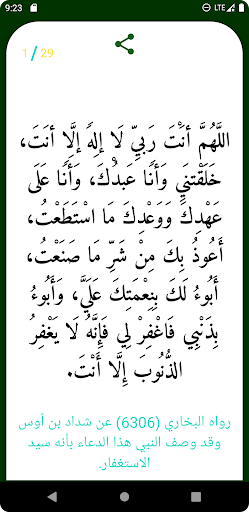 9:23 LTE
1 / 29
اللَّهُمَّ أَنْتَ رَبِيِّ لَا إِلهَ إِلَّا أنَتَ،
خَلَقْتنَيِ وَأَنًا عَبدُكَ، وَأَنًا عَلَى
عَهْدِكَ وَوَعْدِكَ مَا اسْتَطَعْتُ،
أَعُوذُ بِكَ مِنْ شَرِّ مَا صَنَعْتُ،
أَبُوءُ لَكَ بِنِعْمَتِكَ عَلَيَّ، وَأَبُوءُ
بِذَنْبِي فَاغْفِرْ لِي فَإِنَّهُ لَا يَغْفِرُ
الذُّنُوبَ إِلَّا أَنْتَ.
رواه البخاري (6306) عن شداد بن أوس
وقد وصف النبي هذا الدعاء بأنه سيد
الاستغفار.